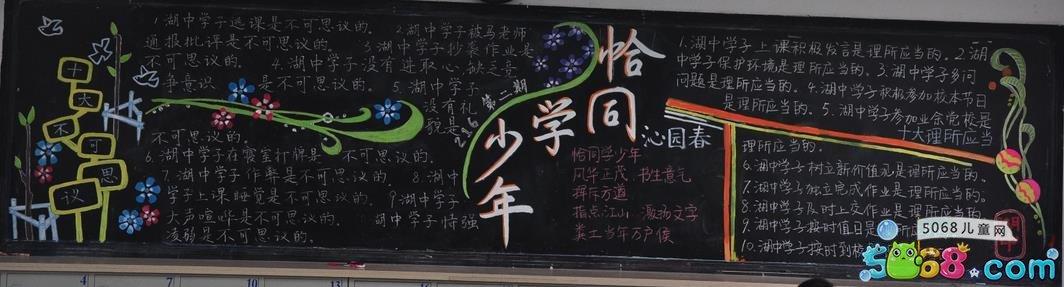 十大不可思议
1.湖中学子逃课是不可思议的。 2.湖中学子被马老师
通报批评是不可思议的。 3.湖中学子抄袭作业是
不可思议的。 4.湖中学子没有进取心,缺乏竞
争意识 是不可思议的。 5.湖中学子
没有礼
貌是
不可思议的。
6.湖中学子在寝室打牌是 不可思议的。
7.湖中学子作弊是不可思议的。 8.湖中
学子上课睡觉是不可思议的。 9.湖中学子
大声喧哗是不可思议的。 湖中学子恃强
凌弱是不可思议的。
第二期
恰同学少年
沁园春
恰同学少年
风华正茂 书生意气
挥斥方遒
指点江山 激扬文字
粪土当年万户侯
1.湖中学子上课积极发言是理所应当的。2.湖
中学子保护环境是理所应当的。3.湖中学子多问
问题是理所应当的。4.湖中学子积极参加校本节日
是理所应当的。5.湖中学子参加业余党校是
十大理所应当
理所应当的。
6.湖中学子树立新价值观是理所应当的。
7.湖中学子独立完成作业是理所应当的。
8.湖中学子及时上交作业是理所应当的。
9.湖中学子按时值日是
10.湖中学子按时到校
5068儿童网
5068.com
4
7
10